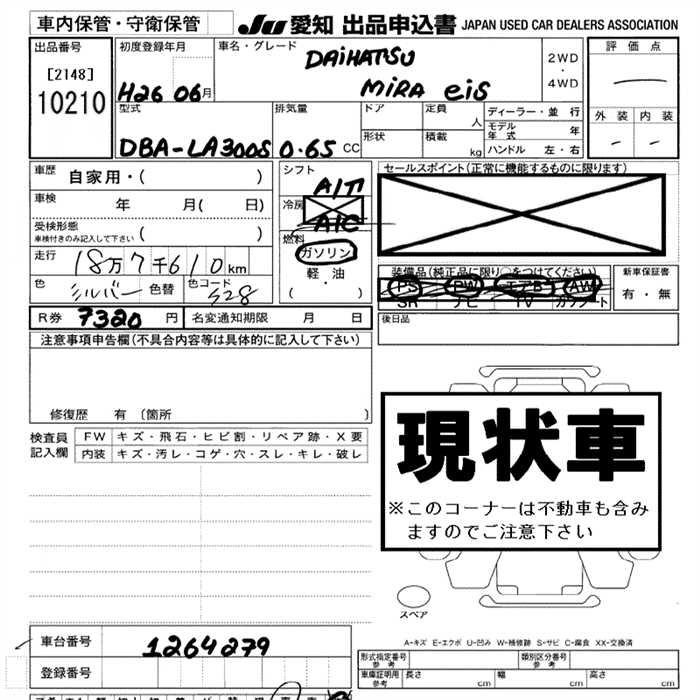 車内保管・守衛保管
JU 愛知 出品申込書 JAPAN USED CAR DEALERS ASSOCIATION
出品番号
[2148]
10210
初度登録年月
H26 06月
車名・グレード
DAIHATSU
MIRA eis
2WD
・
4WD
評価点
外装 内装
型式
DBA-LA300S
排気量
0.65 CC
ドア
形状
定員 人
積載 kg
ディーラー・並行
モデル年式 年
ハンドル 左・右
車歴 自家用・( )
車検 年 月( 日)
受検形態
車検付きのみ記入して下さい ( )
走行 18万7千610km
色 シルバー 色替 色コード S28
シフト A/T
冷房 A/C
燃料
ガソリン
軽油
・
( )
セールスポイント(正常に機能するものに限ります)
装備品(純正品に限り○をつけてください)
PS PW エアB AW
SR ナビ TV カワシート
新車保証書
有・無
R券 7320 円
名変通知期限 月 日
後日品
注意事項申告欄(不具合内容等は具体的に記入して下さい)
修復歴 有 〔箇所 〕
検査員記入欄
FW キズ・飛石・ヒビ割・リペア跡・X要
内装 キズ・汚レ・コゲ・穴・スレ・キレ・破レ
現状車
※このコーナーは不動車も含み
ますのでご注意下さい
スペア
A-キズ E-エクボ U-凹み W-補修跡 S-サビ C-腐食 XX-交換済
車台番号 1264279
登録番号
形式指定番号 参考
類別区分番号 参考
車庫証明用 参考 長さ cm 幅 cm 高さ cm